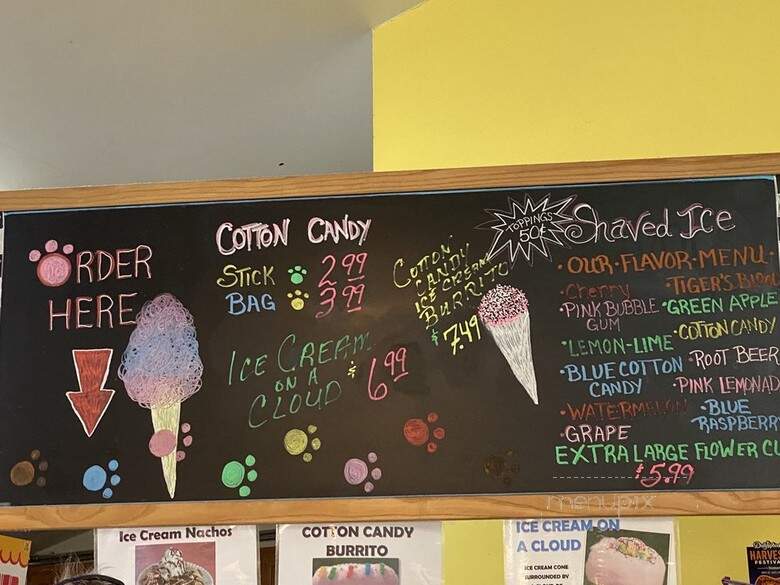 ORDER
HERE
COTTON CANDY
STICK 2.99
BAG 3.99
ICE CREAM
ON A
CLOUD $6.99
COTTON
CANDY
ICE CREAM
BURRITO
$7.49
TOPPINGS
50¢
Shaved Ice
• OUR • FLAVOR • MENU •
• Cherry • TIGER'S
• PINK BUBBLE
GUM
• GREEN APPLE
• LEMON-LIME • COTTON CANDY
• BLUE COTTON
CANDY
• ROOT BEER
• PINK LEMONAD
• WATERMELON • BLUE
RASPBERRY
• GRAPE
EXTRA LARGE FLOWER
$5.99
menupix
Ice Cream Nachos
COTTON CANDY
BURRITO
ICE CREAM ON
A CLOUD
ICE CREAM CONE
SURROUNDED BY
HARVES